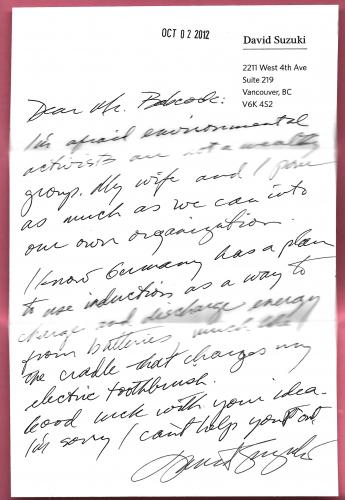 OCT 02 2012
David Suzuki
2211 West 4th Ave
Suite 219
Vancouver, BC
V6K 4S2
Dear Mr. Babcock:
I'm afraid environmental
activists are not a wealthy
group. My wife and I pour
as much as we can into
our own organization.
I know Germany has a plan
to use induction as a way to
charge and discharge energy
from batteries, much like
the cradle that charges my
electric toothbrush.
Good luck with your idea.
I'm sorry I can't help you out
David Suzuki